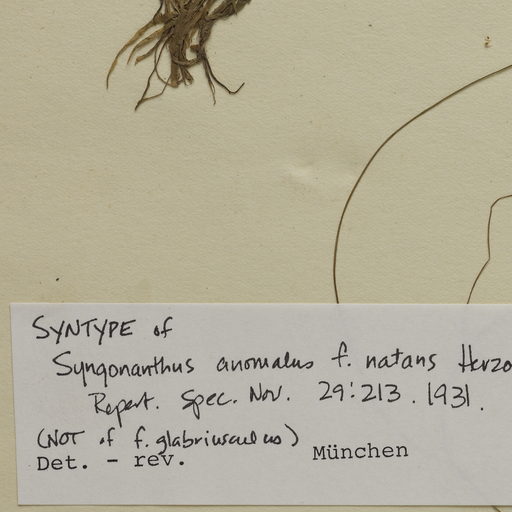 SYNTYPE of
Syngonanthus anomalus f. natans Herzo
Repert. Spec. Nov. 29:213. 1931.
(NOT of f. glabriusculus)
Det. - rev. München